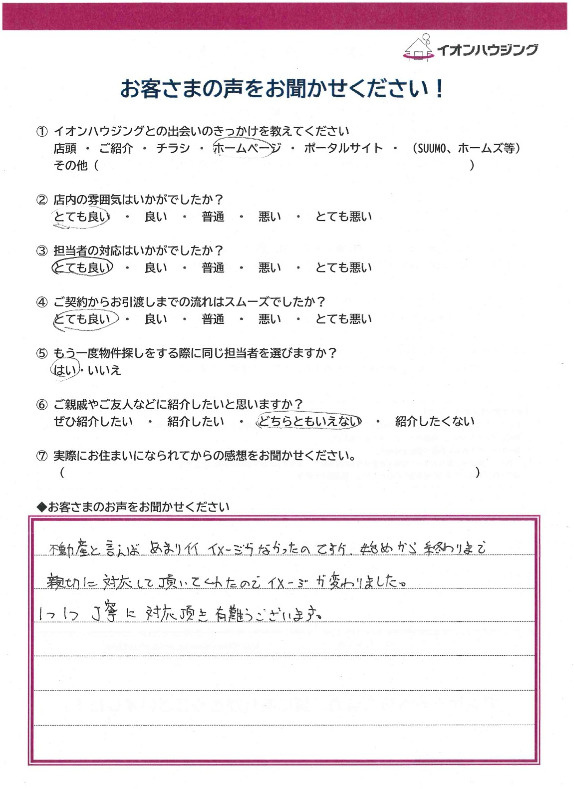 イオンハウジング
お客さまの声をお聞かせください！
① イオンハウジングとの出会いのきっかけを教えてください
店頭 ・ ご紹介 ・ チラシ ・ ホームページ ・ ポータルサイト ・ （SUUMO、ホームズ等）
その他（ ）
② 店内の雰囲気はいかがでしたか？
とても良い ・ 良い ・ 普通 ・ 悪い ・ とても悪い
③ 担当者の対応はいかがでしたか？
とても良い ・ 良い ・ 普通 ・ 悪い ・ とても悪い
④ ご契約からお引渡しまでの流れはスムーズでしたか？
とても良い ・ 良い ・ 普通 ・ 悪い ・ とても悪い
⑤ もう一度物件探しをする際に同じ担当者を選びますか？
はい・いいえ
⑥ ご親戚やご友人などに紹介したいと思いますか？
ぜひ紹介したい ・ 紹介したい ・ どちらともいえない ・ 紹介したくない
⑦ 実際にお住まいになられてからの感想をお聞かせください。
（ ）
◆お客さまのお声をお聞かせください
不動産と言えば、あまりイイ イメージがなかったのですが、始めから終わりまで
親切に対応して頂いてくれたのでイメージが変わりました。
1つ1つ丁寧に対応頂き有難うございます。